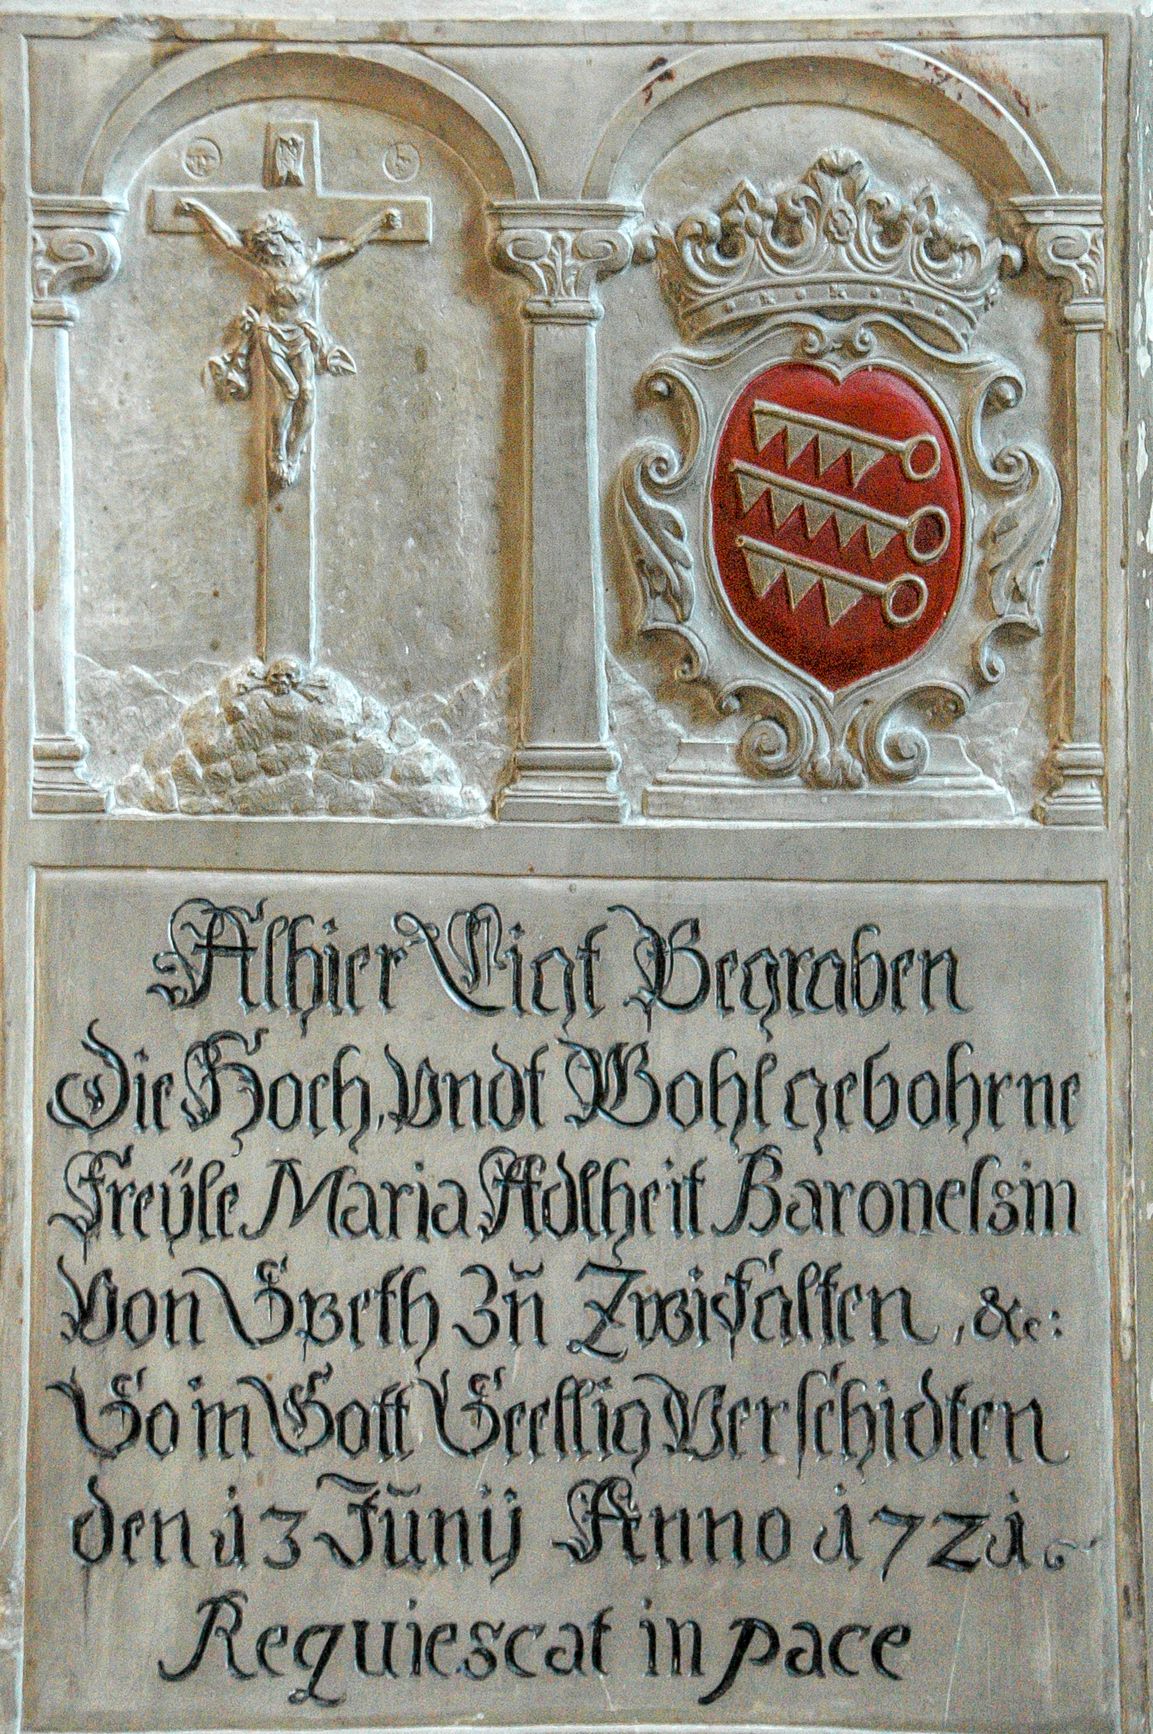 Alhier Ligt Begraben
Die Hoch, Vndt Wohlgebohrne
Freÿle Maria Adlheit Baronelsin
Von Speth Zů Zwifalten, &c:
So in Gott Seellig Verschidten
den 13 Jůnij Anno 1721
Requiescat in pace